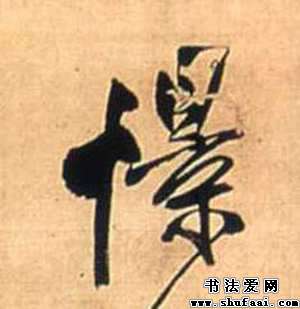 憬
书法爱网
www.shufaai.com